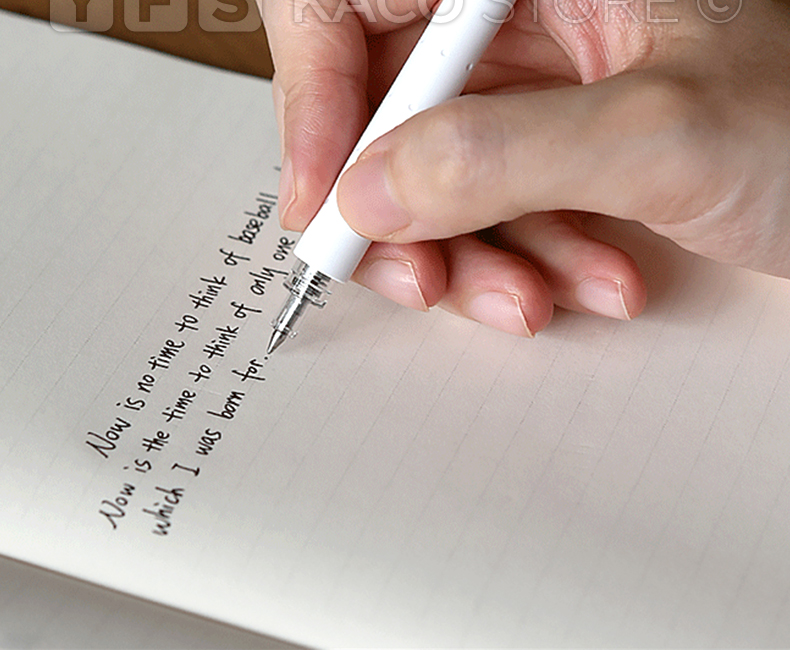 YFS KACO STORE ©
Now is no time to think of baseball
Now is the time to think of only one
which I was born for.